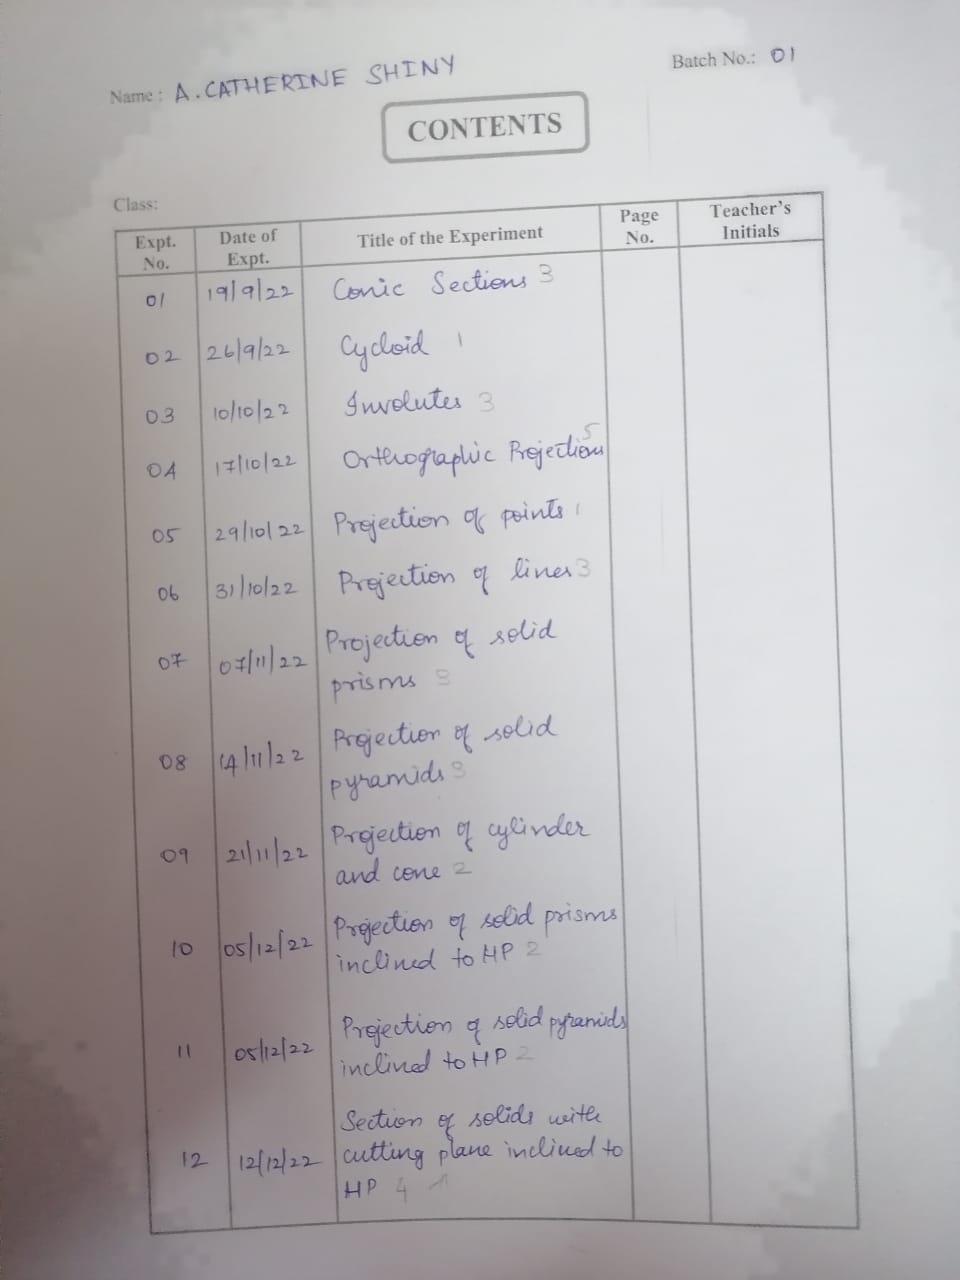 Name : A. CATHERINE SHINY Batch No.: 01
CONTENTS
Class:
Expt. No. Date of Expt. Title of the Experiment Page No. Teacher's Initials
01 19/9/22 Conic Sections 3
02 26/9/22 Cycloid 1
03 10/10/22 Involutes 3
04 17/10/22 Orthographic Projections 5
05 29/10/22 Projection of points 1
06 31/10/22 Projection of lines 3
07 07/11/22 Projection of solid
prisms 3
08 14/11/22 Projection of solid
pyramids 3
09 21/11/22 Projection of cylinder
and cone 2
10 05/12/22 Projection of solid prisms
inclined to HP 2
11 05/12/22 Projection of solid pyramids
inclined to HP 2
12 12/12/22 Section of solids with
cutting plane inclined to
HP 4